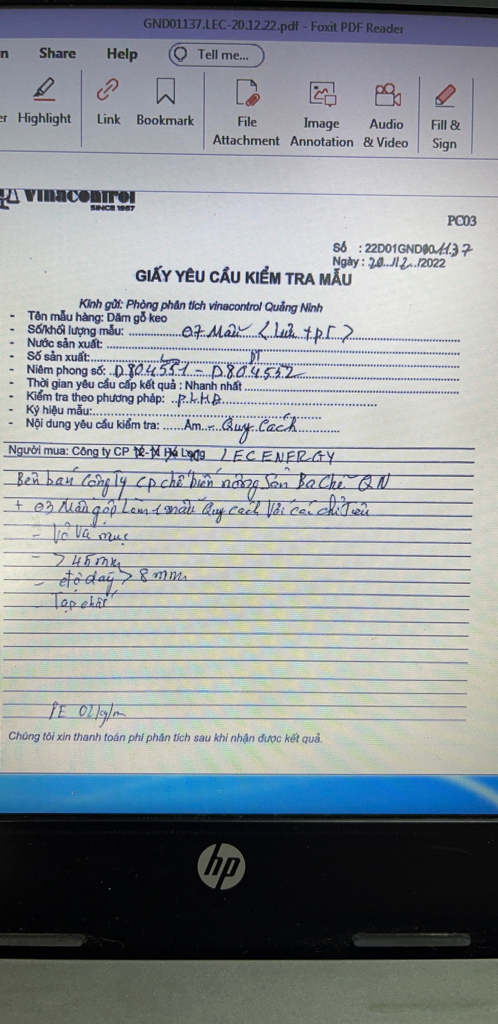 GND01137.LEC-20.12.22.pdf - Foxit PDF Reader
Share Help Tell me...
Highlight Link Bookmark File Attachment Image Annotation Audio & Video Fill & Sign
Vinacontrol
SINCE 1957
PC03
Số : 22D01GND01137
Ngày : 20/12/2022
GIẤY YÊU CẦU KIỂM TRA MẪU
Kính gửi: Phòng phân tích vinacontrol Quảng Ninh
- Tên mẫu hàng: Dăm gỗ keo
- Số/khối lượng mẫu: 07 Mẫu ( Lưu + PT )
- Nước sản xuất:
- Số sản xuất: L PT
- Niêm phong số: D804551 - D804552
- Thời gian yêu cầu cấp kết quả : Nhanh nhất
- Kiểm tra theo phương pháp: P.L.H.D
- Ký hiệu mẫu:
- Nội dung yêu cầu kiểm tra: Ẩm - Quy Cách
Người mua: Công ty CP LEC ENERGY
Bên bán Công ty CP chế biến nông sản Ba Chẽ QN
+ 03 Mẫu gộp Làm 1 mẫu Quy cách Với các chỉ tiêu
- Vỏ và mục
- > 45 mm
- độ dày > 8 mm
- Tạp chất
Chúng tôi xin thanh toán phí phân tích sau khi nhận được kết quả.
hp